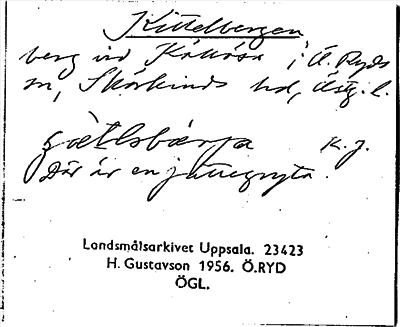 Kittelbergen
berg vid i Ö. Ryds
sn, Skärkinds hd, Östg. l.
K. J.
Där är en jättegryta.
Landsmålsarkivet Uppsala. 23423
H. Gustavson 1956. Ö.RYD
ÖGL.